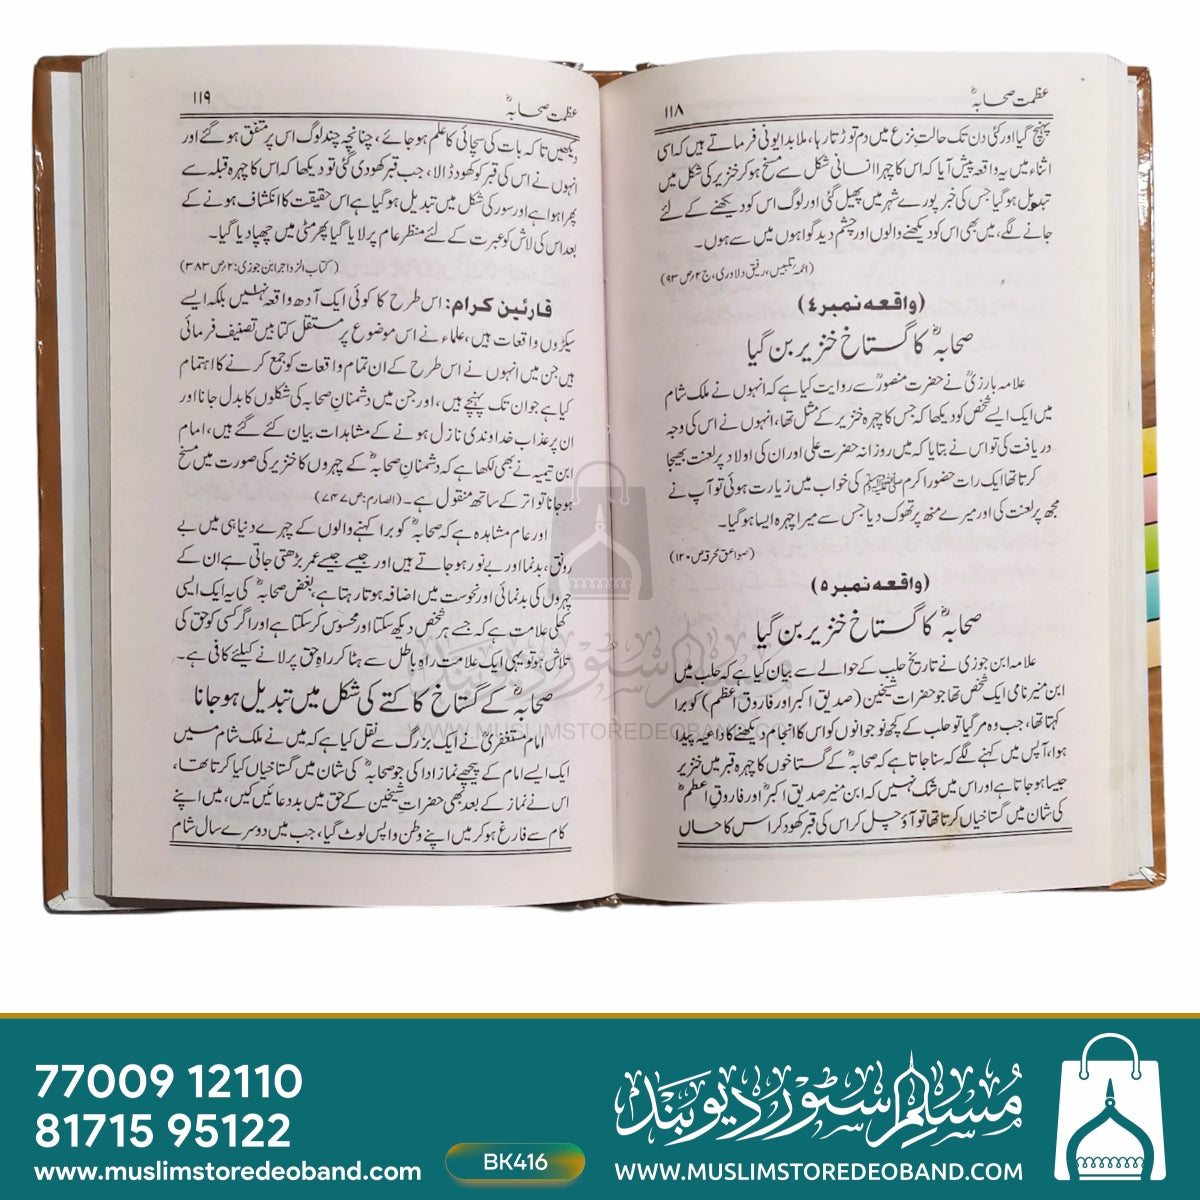 عظمت صحابہؓ
۱۱۸
پہنچ گیا اور کئی دن تک حالتِ نزع میں دم توڑتا رہا، ملا بدایونی فرماتے ہیں کہ اسی
اثناء میں یہ واقعہ پیش آیا کہ اس کا چہرا انسانی شکل سے مسخ ہو کر خنزیر کی شکل میں
تبدیل ہو گیا جس کی خبر پورے شہر میں پھیل گئی اور لوگ اس کو دیکھنے کے لئے
جانے لگے، میں بھی اس کو دیکھنے والوں اور چشم دید گواہوں میں سے ہوں۔
(ائمہ تلبیس، رفیق دلاوری، ج۲ ص۹۳)
(واقعہ نمبر ۴)
صحابہؓ کا گستاخ خنزیر بن گیا
علامہ بارزیؒ نے حضرت منصورؒ سے روایت کیا ہے کہ انہوں نے ملک شام
میں ایک ایسے شخص کو دیکھا کہ جس کا چہرہ خنزیر کے مثل تھا، انہوں نے اس کی وجہ
دریافت کی تو اس نے بتایا کہ میں روزانہ حضرت علی اور ان کی اولاد پر لعنت بھیجا
کرتا تھا ایک رات حضور اکرم ﷺ کی خواب میں زیارت ہوئی تو آپ نے
مجھ پر لعنت کی اور میرے منھ پر تھوک دیا جس سے میرا چہرہ ایسا ہو گیا۔
(صواعق محرقہ ص۱۲۰)
(واقعہ نمبر ۵)
صحابہؓ کا گستاخ خنزیر بن گیا
علامہ ابن جوزی نے تاریخ حلب کے حوالے سے بیان کیا ہے کہ حلب میں
ابن منیر نامی ایک شخص تھا جو حضرات شیخین (صدیق اکبر اور فاروق اعظم) کو برا
کہتا تھا، جب وہ مر گیا تو حلب کے کچھ نوجوانوں کو اس کا انجام دیکھنے کا داعیہ پیدا
ہوا، آپس میں کہنے لگے کہ سنا جاتا ہے کہ صحابہؓ کے گستاخوں کا چہرہ قبر میں خنزیر
جیسا ہو جاتا ہے اور اس میں شک نہیں کہ ابن منیر صدیق اکبرؓ اور فاروق اعظمؓ
کی شان میں گستاخیاں کرتا تھا تو آؤ چل کر اس کی قبر کھود کر اس کا حال
عظمت صحابہؓ
۱۱۹
دیکھیں تاکہ بات کی سچائی کا علم ہو جائے، چنانچہ چند لوگ اس پر متفق ہو گئے اور
انہوں نے اس کی قبر کو کھود ڈالا، جب قبر کھودی گئی تو دیکھا کہ اس کا چہرہ قبلہ سے
پھرا ہوا ہے اور سور کی شکل میں تبدیل ہو گیا ہے اس حقیقت کا انکشاف ہونے کے
بعد اس کی لاش کو عبرت کے لئے منظر عام پر لایا گیا پھر مٹی میں چھپا دیا گیا۔
(کتاب الزواجر ابن جوزی: ۲ ص ۳۸۳)
قارئین کرام: اس طرح کا کوئی ایک آدھ واقعہ نہیں بلکہ ایسے
سیکڑوں واقعات ہیں، علماء نے اس موضوع پر مستقل کتابیں تصنیف فرمائی
ہیں جن میں انہوں نے اس طرح کے ان تمام واقعات کو جمع کرنے کا اہتمام
کیا ہے جو ان تک پہنچے ہیں، اور جن میں دشمنانِ صحابہ کی شکلوں کا بدل جانا اور
ان پر عذاب خداوندی نازل ہونے کے مشاہدات بیان کئے گئے ہیں، امام
ابن تیمیہ نے بھی لکھا ہے کہ دشمنانِ صحابہؓ کے چہروں کا خنزیر کی صورت میں مسخ
ہو جانا تواتر کے ساتھ منقول ہے۔ (الصارم: ص۷۴۷)
اور عام مشاہدہ ہے کہ صحابہؓ کو برا کہنے والوں کے چہرے دنیا ہی میں بے
رونق، بدنما اور بے نور ہو جاتے ہیں اور جیسے جیسے عمر بڑھتی جاتی ہے ان کے
چہروں کی بدنمائی اور نحوست میں اضافہ ہوتا رہتا ہے، بغض صحابہؓ کی یہ ایک ایسی
کھلی علامت ہے کہ جسے ہر شخص دیکھ سکتا اور محسوس کر سکتا ہے اور اگر کسی کو حق کی
تلاش ہو تو یہی ایک علامت راہِ باطل سے ہٹا کر راہِ حق پر لانے کیلئے کافی ہے۔
صحابہؓ کے گستاخ کا کتے کی شکل میں تبدیل ہو جانا
امام مستغفریؒ نے ایک بزرگ سے نقل کیا ہے کہ میں نے ملک شام میں
ایک ایسے امام کے پیچھے نماز ادا کی جو صحابہؓ کی شان میں گستاخیاں کیا کرتا تھا،
اس نے نماز کے بعد بھی حضراتِ شیخینؓ کے حق میں بددعائیں کیں، میں اپنے
کام سے فارغ ہو کر میں اپنے وطن واپس لوٹ گیا، جب میں دوسرے سال شام
مسلم سٹور دیوبند
WWW.MUSLIMSTOREDEOBAND.COM
77009 12110
81715 95122
www.muslimstoredeoband.com
BK416
مسلم سٹور دیوبند
WWW.MUSLIMSTOREDEOBAND.COM